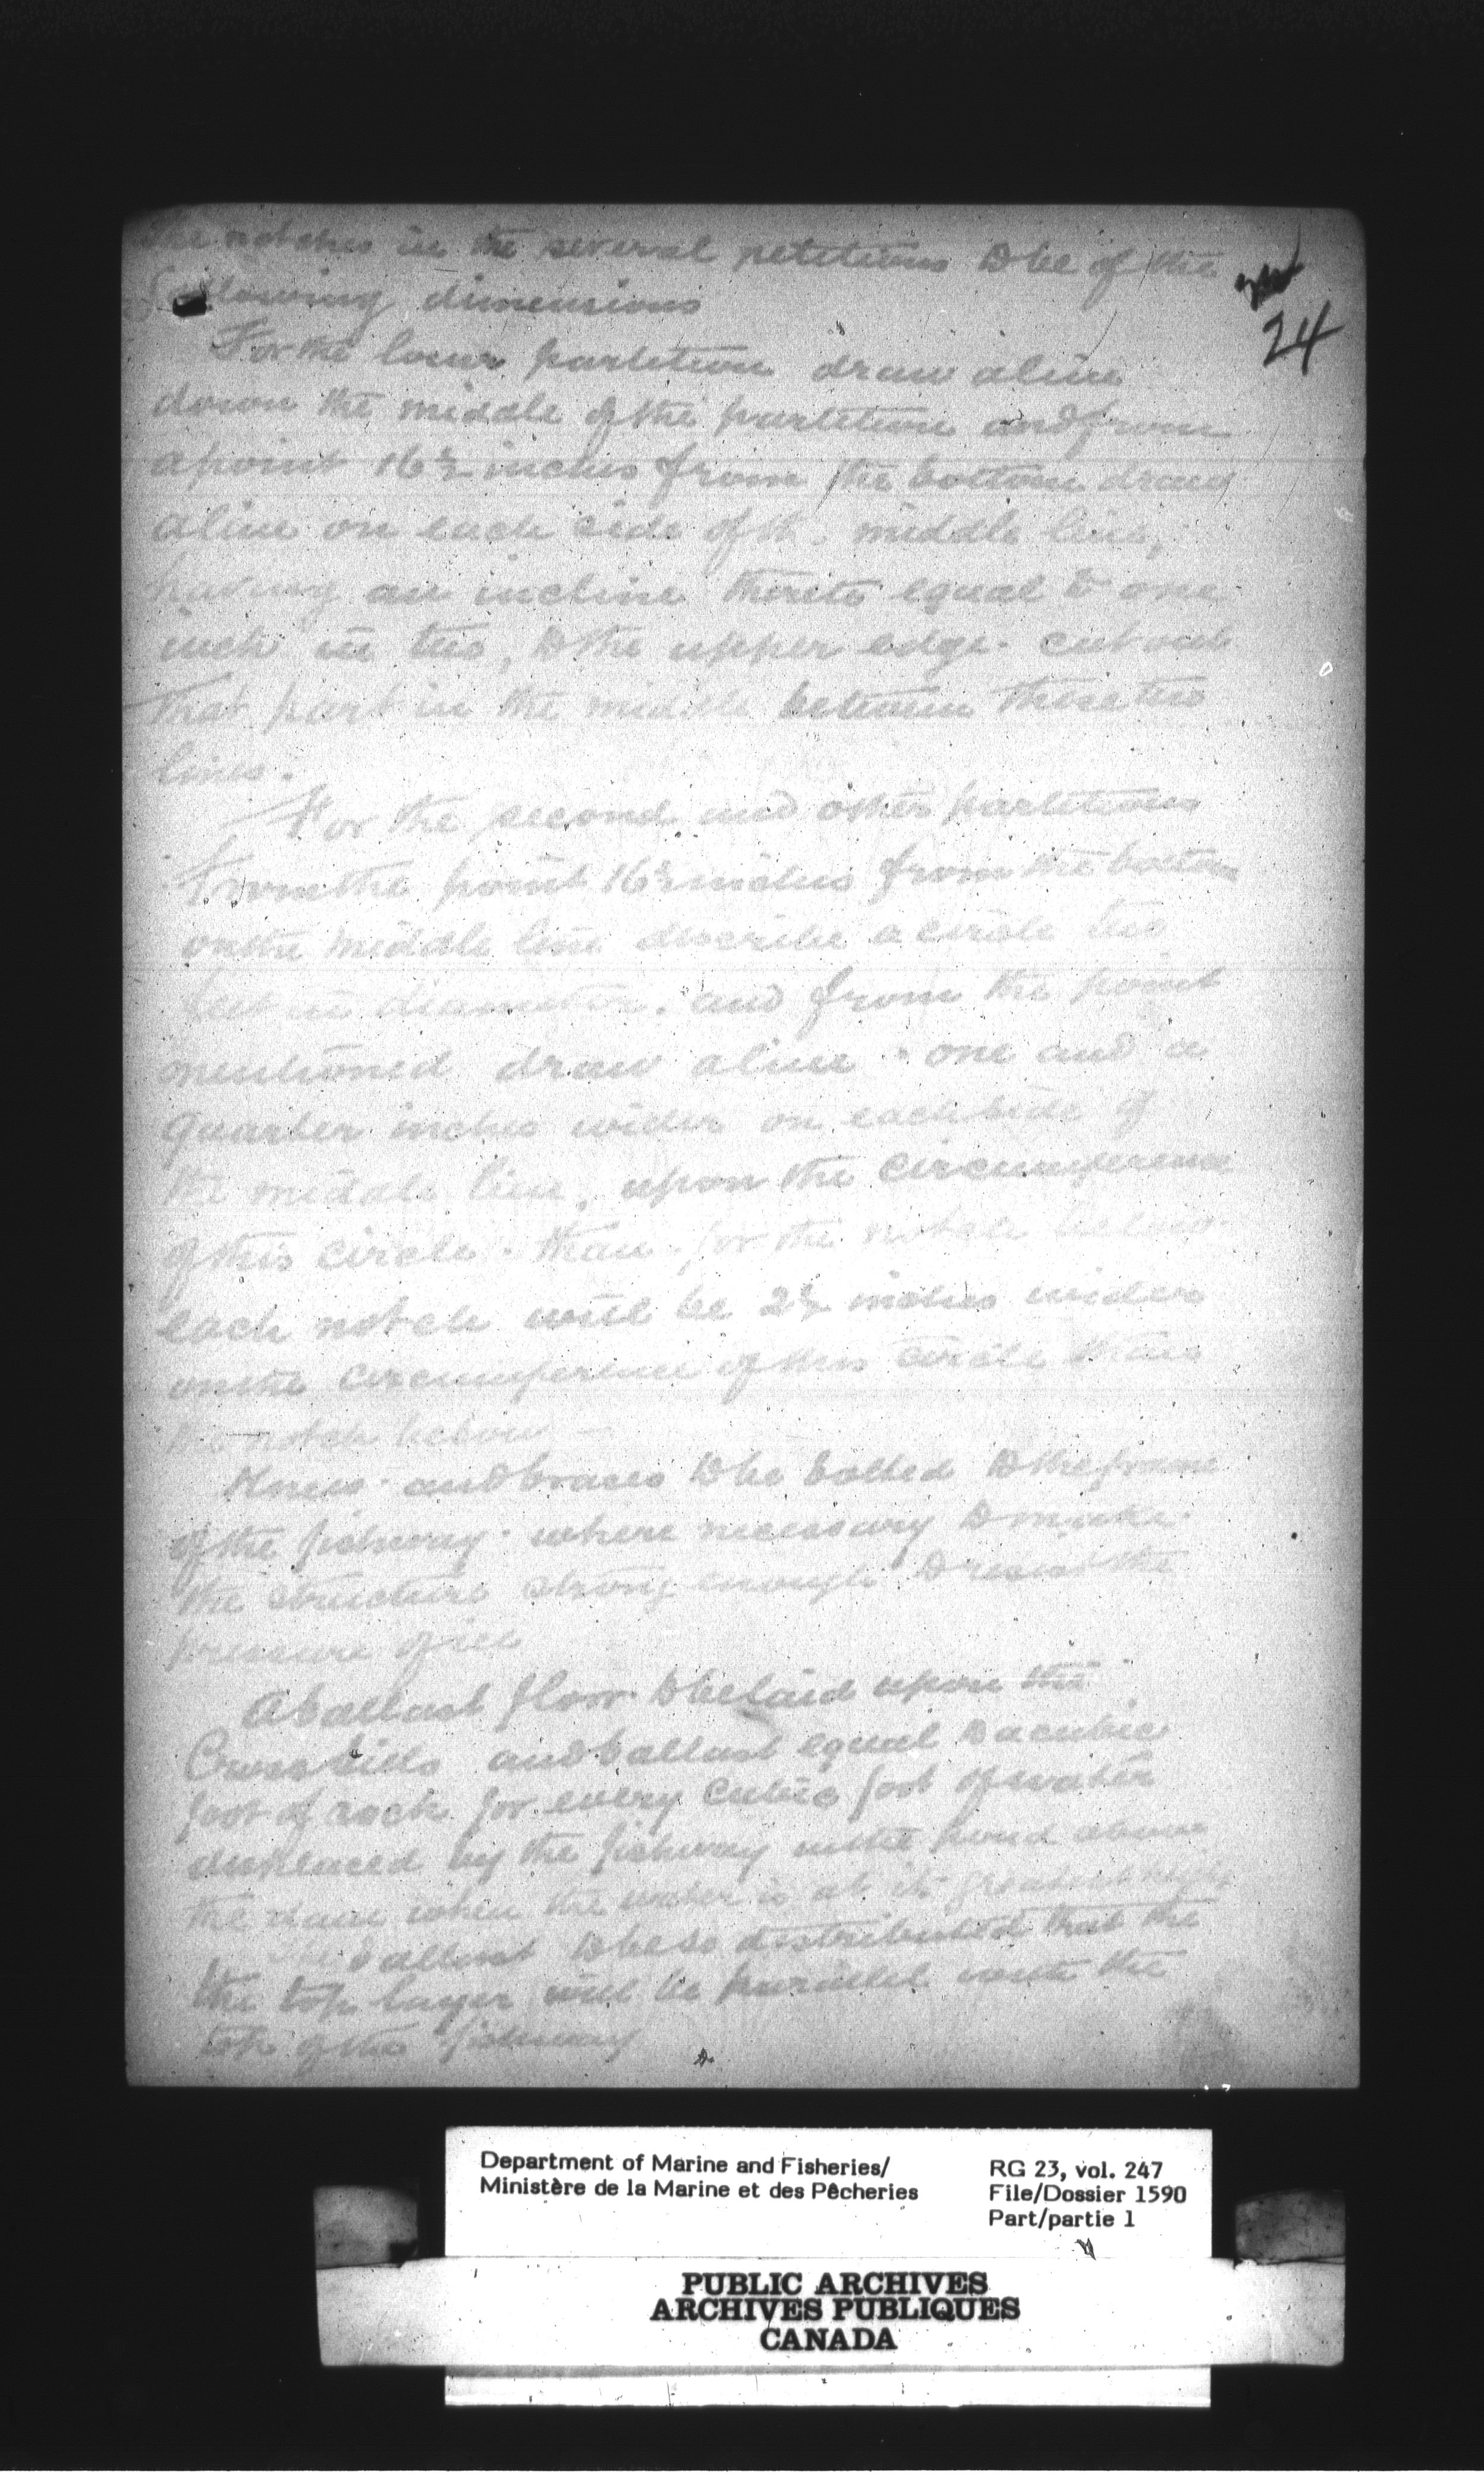 The notches in the several petetions to be of the
following dimensions
24
For the lower partetion draw a line
down the middle of the partetion and from
a point 16½ inches from the bottom draw
a line on each side of th. middle line,
having an incline thereto equal to one
inch in two, to the upper edge. cut out
that part in the middle between these two
lines.
For the second and other partetions
From the point 16½ inches from the bottom
on the middle line describe a circle two
feet in diameter. and from the point
mentioned draw a line one and a
quarter inches wider on each side of
the middle line, upon the circumference
of this circle. than, for the notch below.
each notch will be 2½ inches wider
on the circumference of this circle than
the notch below —
Knees and braces to be bolted to the frame
of the fishway where necessary to make
the structure strong enough to resist the
pressure of ice
A ballast floor to be laid upon the
Cross sills and ballast equal to a cubic
foot of rock for every cubic foot of water
displaced by the fishway in the pond above
the dam when the water is at its greatest
The ballast to be so distributed that the
the top layer will be parallel with the
top of the fishway
Department of Marine and Fisheries/
Ministère de la Marine et des Pêcheries
RG 23, vol. 247
File/Dossier 1590
Part/partie 1
PUBLIC ARCHIVES
ARCHIVES PUBLIQUES
CANADA